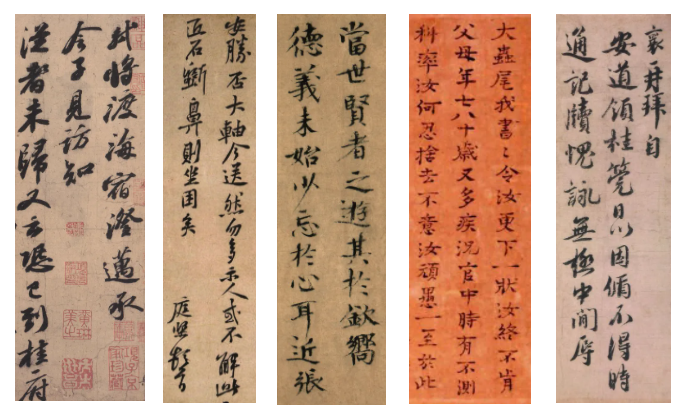 軾將渡海宿澄邁承
令子見訪知
從者未歸又云恐已到桂府
安勝否大軸今送然勿多示人或不解此
匠石斲鼻則坐困矣 庭堅頓首
當世賢者之遊其於欽嚮
德義未始少忘於心耳近張
大蟲尾我書々令汝更下一狀汝終不肯
父母年七八十歲又多疾況官中時有不測
科率汝何忍捨去不意汝頑愚一至於此
襄再拜自
安道領桂筦日以因循不得時
通記牘愧詠無極中間辱